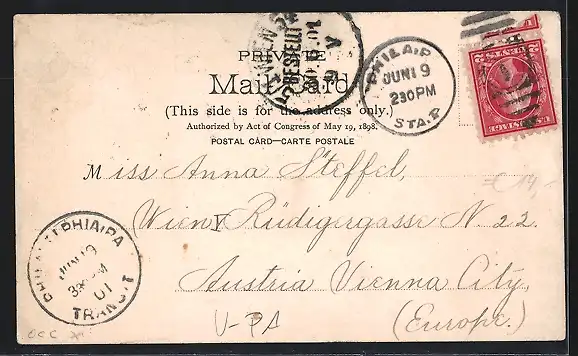 PRIVATE
Mail Card
(This side is for the address only.)
Authorized by Act of Congress of May 19, 1898.
POSTAL CARD—CARTE POSTALE
WIEN
BESTELLT
PHILA.P
JUN 19
230PM
STA.P
Miss Anna Steffel,
Wien V Rüdigergasse N. 22.
Austria Vienna City.
(Europe.)
JUN 19
01
TRANSIT
U-PA
€ 14,-